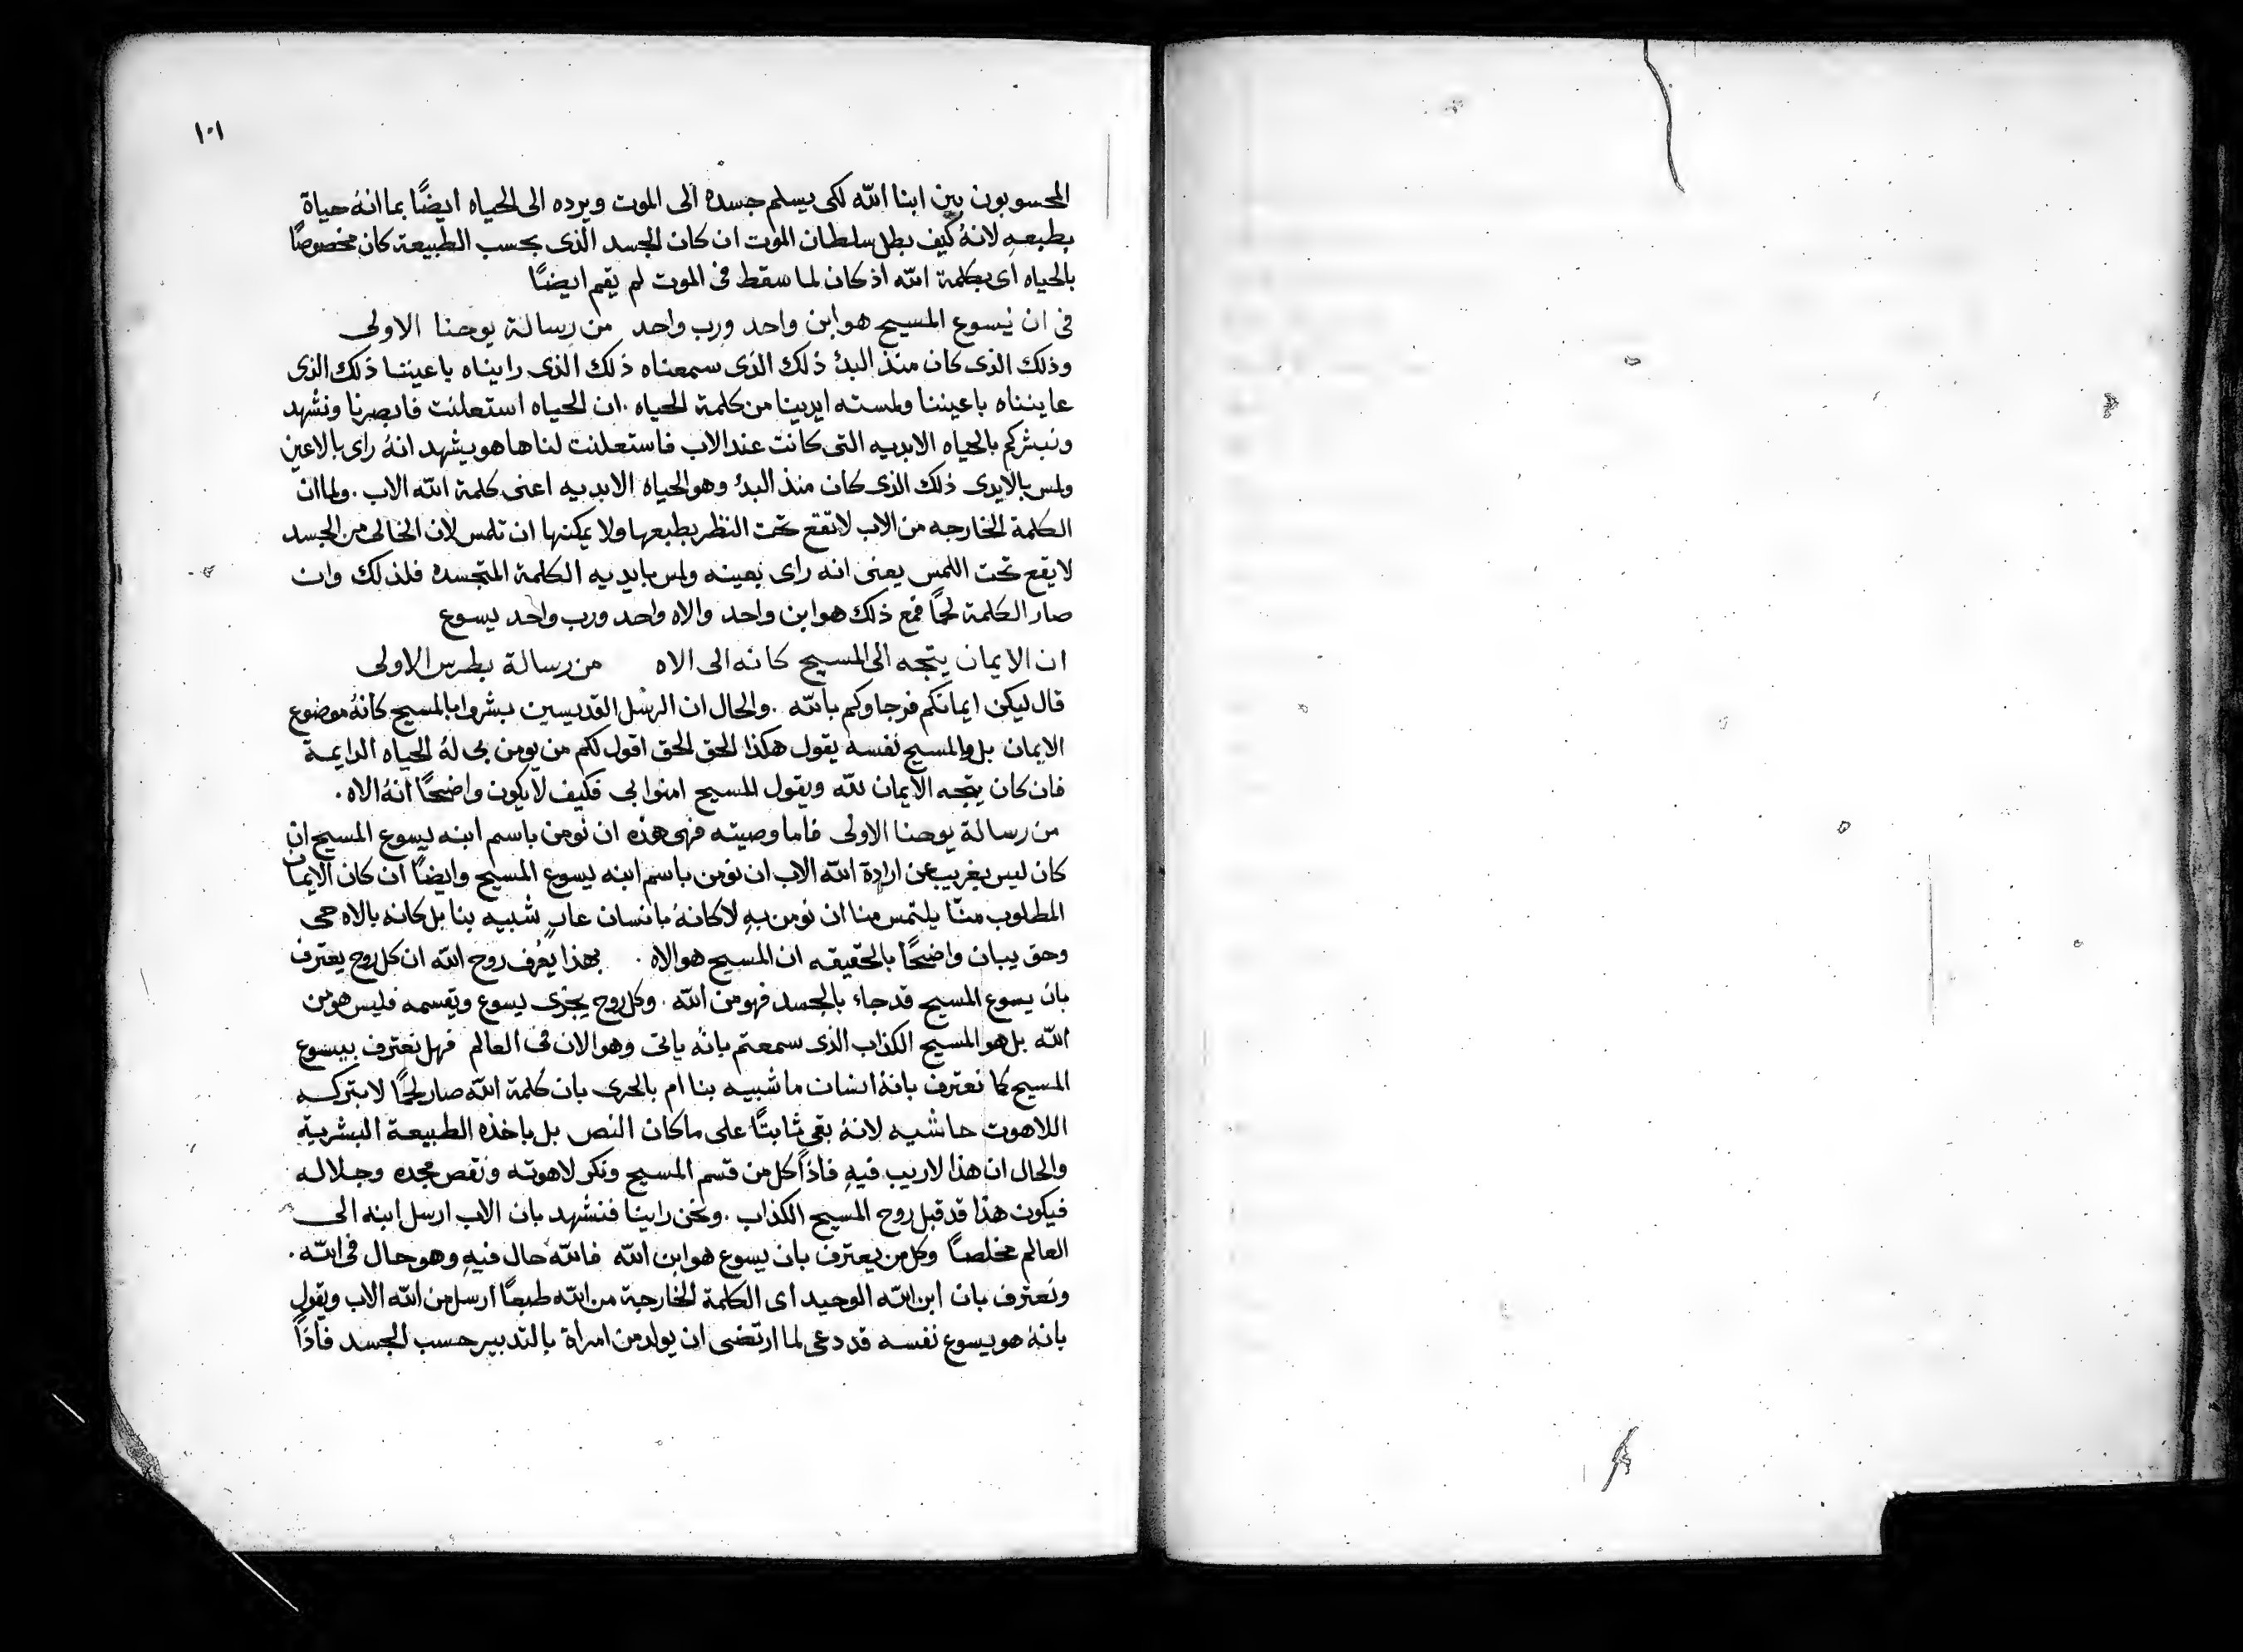 ١٠١
المحسوبون بين ابنا الله لكى يسلم جسده الى الموت ويرده الى الحياه ايضًا بما انهُ حياة
بطبعهِ لانهُ كيف بطل سلطان الموت ان كان الجسد الذى بحسب الطبيعة كان مخصوصًا
بالحياه اى بكلمة الله اذ كان لما سقط فى الموت لم يقم ايضًا
فى ان يسوع المسيح هو ابن واحد ورب واحد من رسالة يوحنا الاولى
وذلك الذى كان منذ البدءُ ذلك الذى سمعناه ذلك الذى رايناه باعيننا ذلك الذى
عايناه باعيننا ولمسته ايدينا من كلمة الحياه . ان الحياه استعلنت فابصرنا ونشهد
ونبشركم بالحياه الابديه التى كانت عند الاب فاستعلنت لنا ها هو يشهد انهُ راى بالاعين
ولمس بالايدى ذلك الذى كان منذ البدءُ وهو الحياه الابديه اعنى كلمة الله الاب . ولما ان
الكلمة الخارجه من الاب لا تقع تحت النظر بطبعها ولا يمكنها ان تلمس لان الخالى من الجسد
لا يقع تحت اللمس يعنى انه راى بعينه ولمس بايديه الكلمة المتجسده فلذلك وان
صار الكلمة لحمًا فمع ذلك هو ابن واحد والاه واحد ورب واحد يسوع
ان الايمان يتجه الى المسيح كانه الى الاه من رسالة بطرس الاولى
قال ليكن ايمانكم فرجاوكم بالله . والحال ان الرسل القديسين بشروا بالمسيح كانهُ موضوع
الايمان بل والمسيح نفسه يقول هكذا الحق الحق اقول لكم من يومن بى لهُ الحياه الدايمة
فان كان يتجه الايمان لله ويقول المسيح امنوا بى فكيف لا يكون واضحًا انهُ الاه .
من رسالة يوحنا الاولى فاما وصيته فهى هذه ان نومن باسم ابنه يسوع المسيح ان
كان ليس بغريب عن ارادة الله الاب ان نومن باسم ابنه يسوع المسيح وايضًا ان كان الايمان
المطلوب منّا يلتمس منا ان نومن بهِ لا كانهُ بانسان عارٍ شبيه بنا بل كانه بالاه حى
وحق يبان واضحًا بالحقيقه ان المسيح هو الاه . بهذا يُعرف روح الله ان كل روح يعترف
بان يسوع المسيح قد جاء بالجسد فهو من الله . وكل روح يجزى يسوع ويقسمه فليس هو من
الله بل هو المسيح الكذاب الذى سمعتم بانهُ ياتى وهو الان فى العالم فهل نعترف بيسوع
المسيح كما نعترف بانهُ انسان ما شبيه بنا ام بالحرى بان كلمة الله صار لحمًا لا بتركه
اللاهوت حاشيه لانهُ بقى ثابتًا على ما كان النص بل باخذه الطبيعة البشرية
والحال ان هذا لا ريب فيهِ فاذًا كل من قسم المسيح ونكر لاهوته ونقص مجده وجلاله
فيكون هذا قد قبل روح المسيح الكذاب . ونحن راينا فنشهد بان الاب ارسل ابنه الى
العالم مخلصًا وكل من يعترف بان يسوع هو ابن الله فالله حال فيهِ وهو حال فى الله .
ونعترف بان ابن الله الوحيد اى الكلمة الخارجة من الله طبعًا ارسل من الله الاب ويقول
بانهُ هو يسوع نفسه قد دعى لما ارتضى ان يولد من امراة بالتدبير حسب الجسد فاذًا